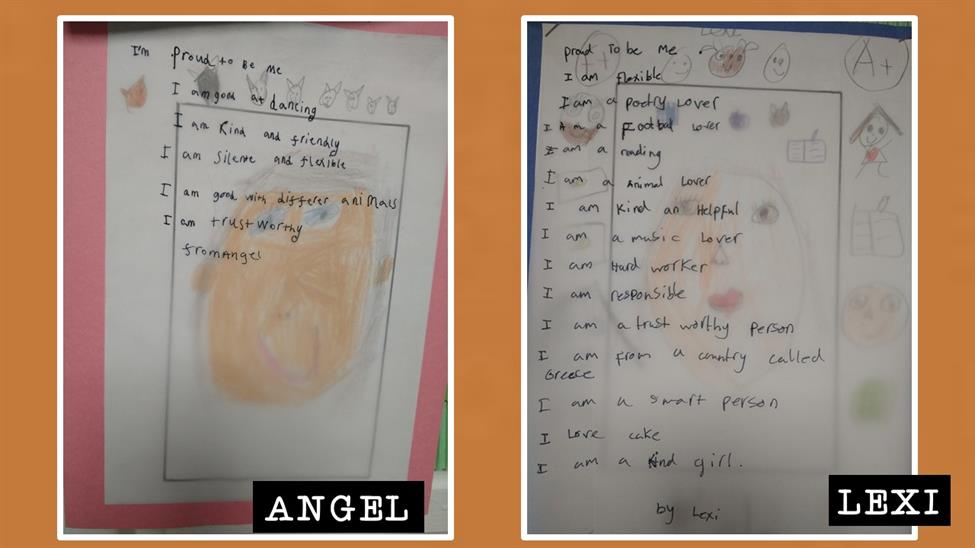 I'm Proud to Be me
I am good at dancing
I am Kind and friendly
I am Silente and flexible
I am good with differer animals
I am trust worthy
from Angel
ANGEL
Lexi
Proud To be me
I am flexible
I am a poetry Lover
I Am a Football Lover
I am a reading
I am a Animal Lover
I am Kind an Helpful
I am a music Lover
I am Hard worker
I am responsible
I am a trust worthy person
I am from a country called
Greece
I am a smart person
I Love cake
I am a kind girl.
by Lexi
A+
LEXI